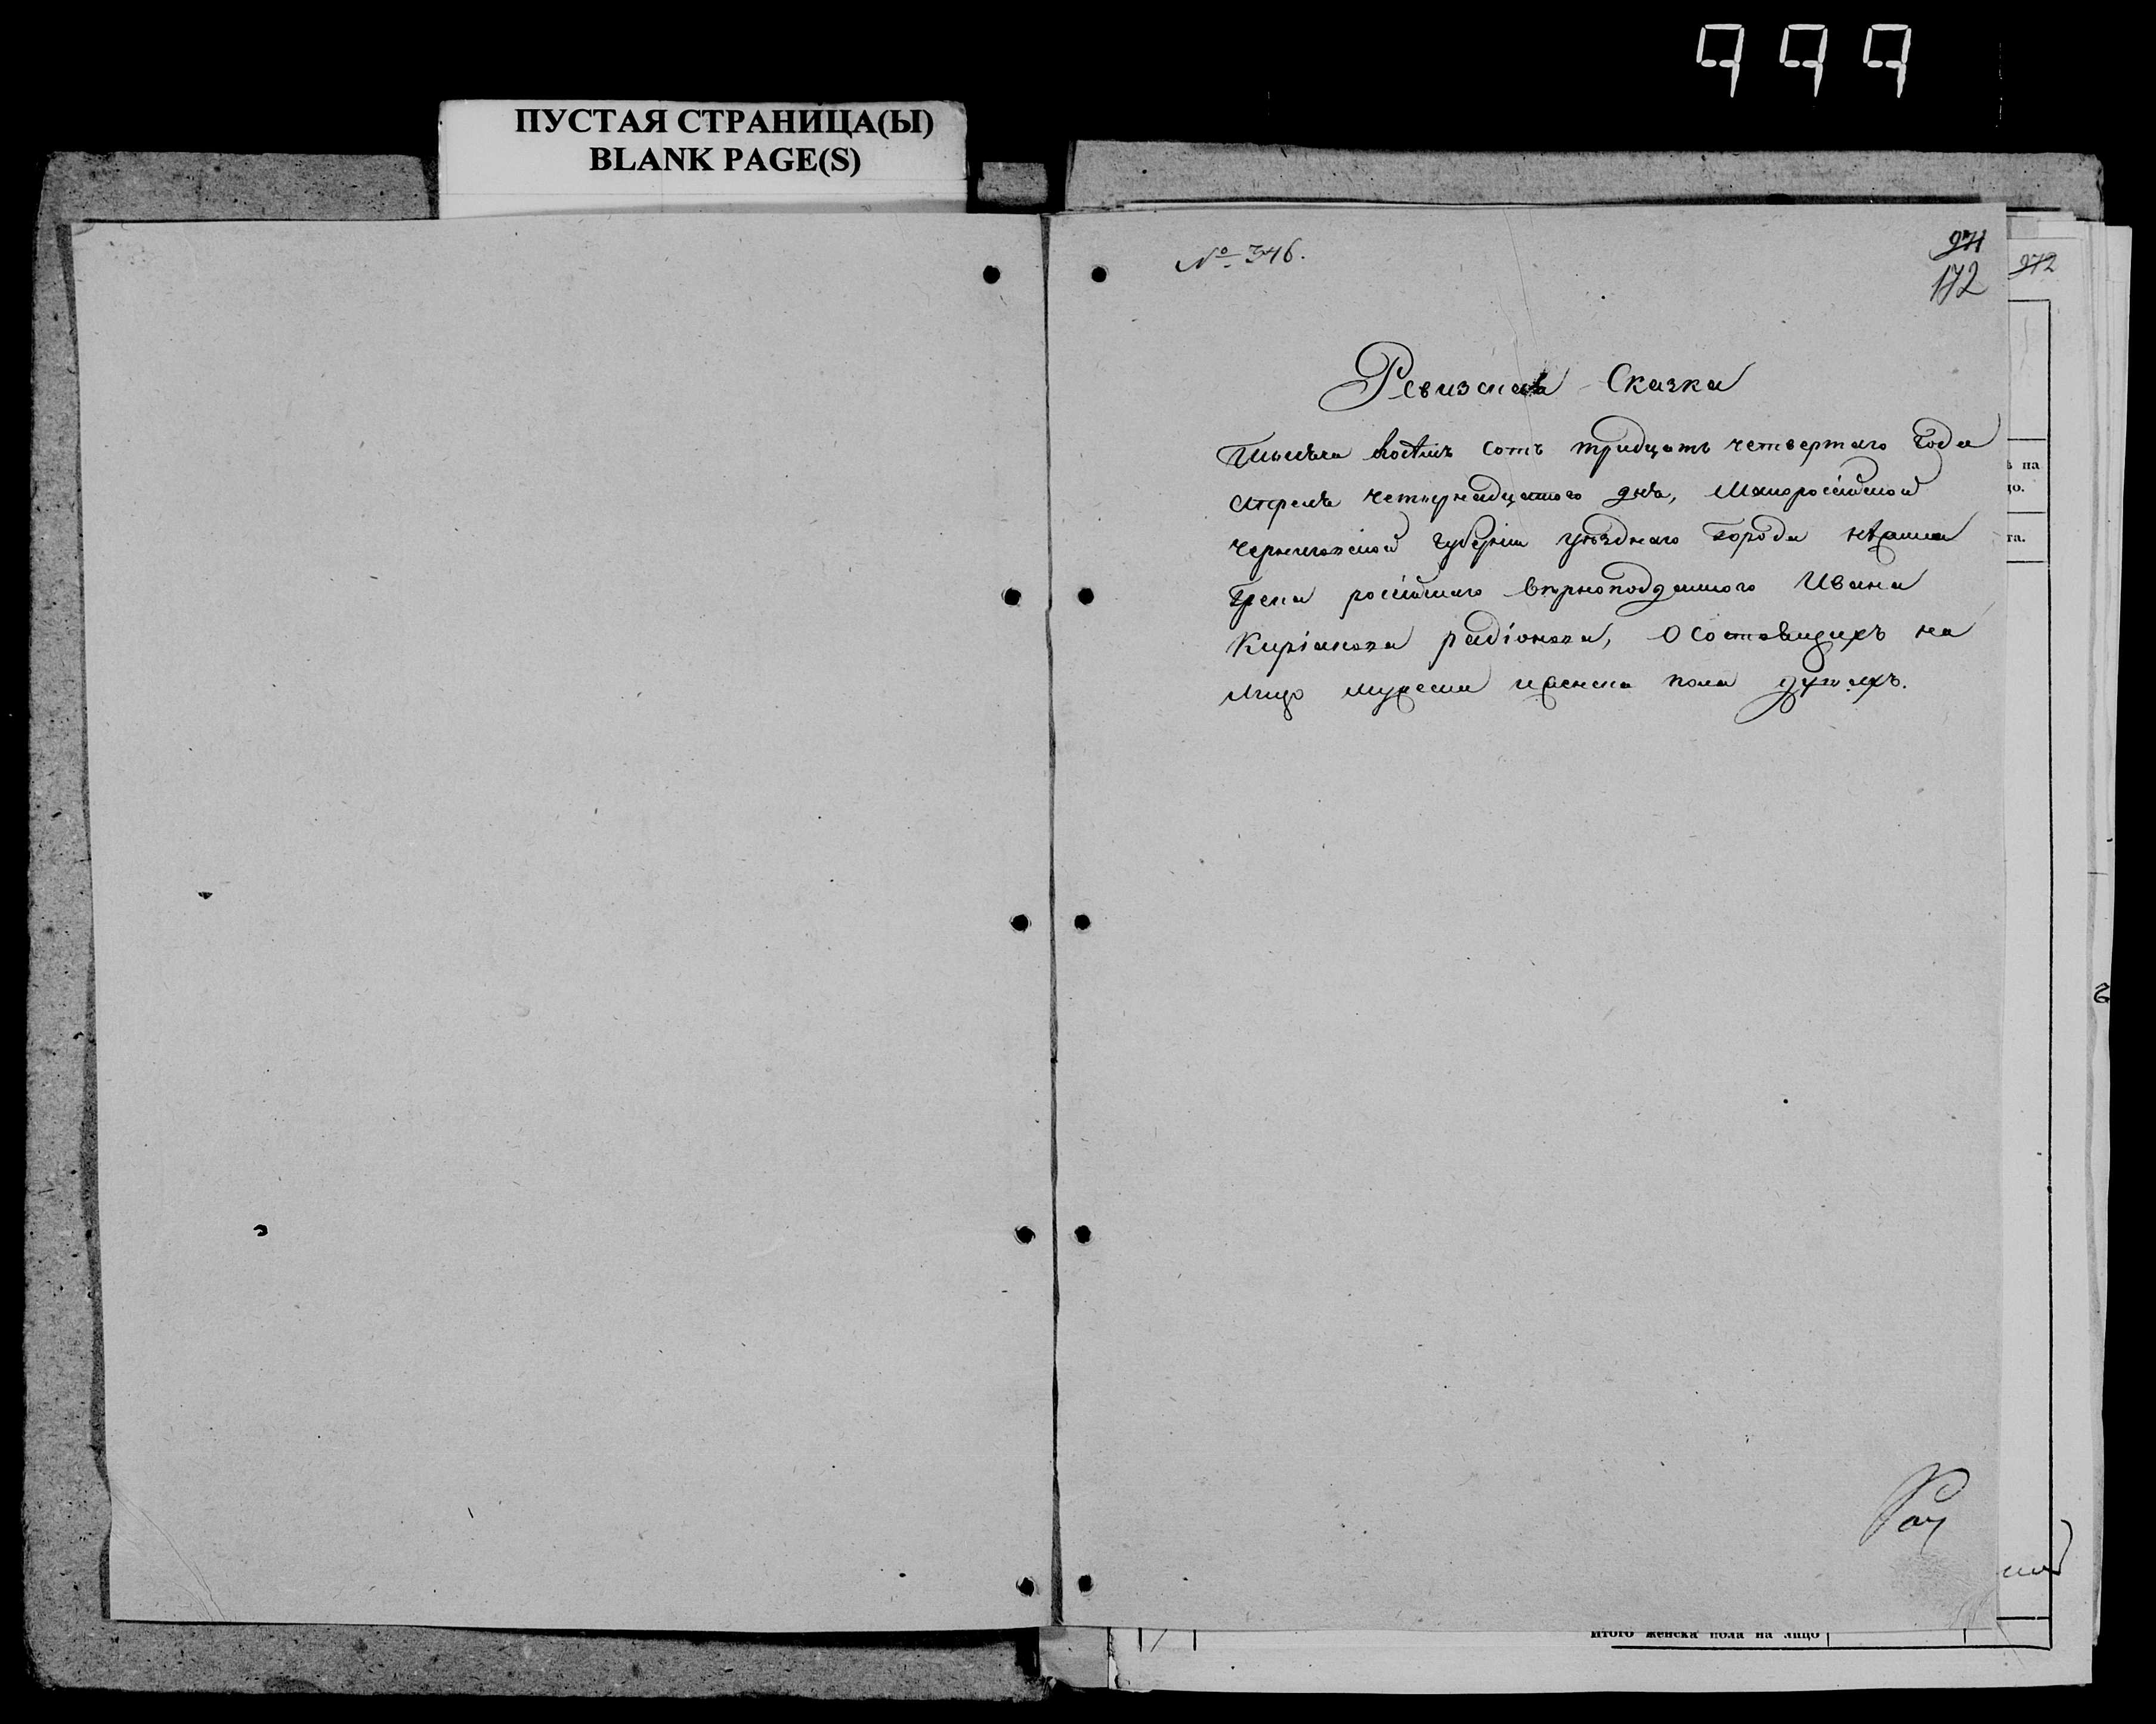 999
ПУСТАЯ СТРАНИЦА(Ы)
BLANK PAGE(S)
№ 346.
271
172
272
Ревизская Сказка
Тысяча восемь сотъ тридцать четвертаго года
апреля четырнадцатого дня, Малороссійской
черниговской губерніи уѣзднаго города нѣжина
грека россійскаго вѣрноподданного Ивана
Киріакова радіонова, О состоящихъ на
лицо мужеска и женска пола душахъ.
ъ на
цо.
та.
Итого женска пола на лицо